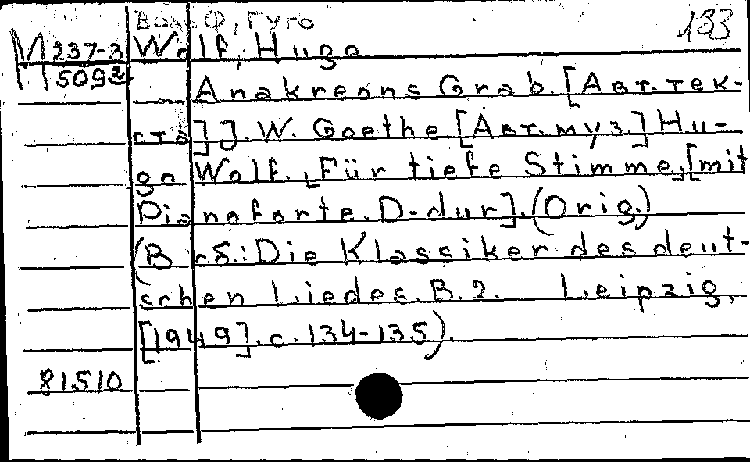 Вольф, Гуго 133
М 237-3 Wolf, Hugo
М 5092 Anakreons Grab. [Авт. тек-
ста]]. W. Goethe [Авт. муз.] Hu-
go Wolf. [Für tiefe Stimme, [mit
Pianoforte. D-dur]. (Orig.)
(В сб.: Die Klassiker des deut-
schen Liedes. B. 2. Leipzig,
[1949]. с. 134-135).
81510